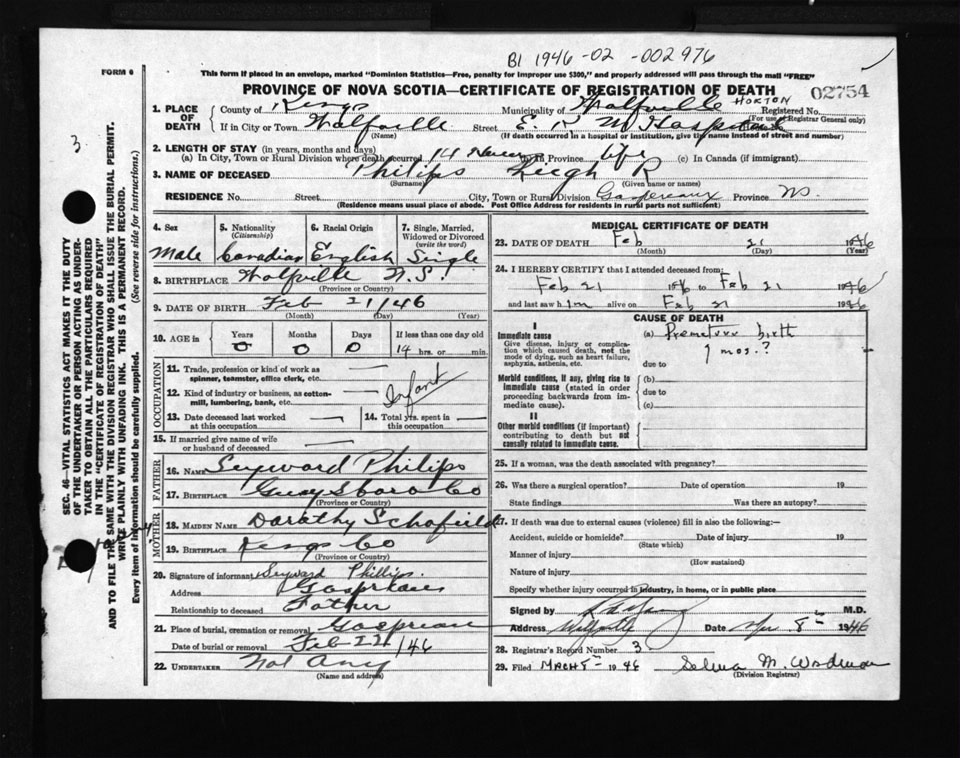 BI 1946-02-002976
FORM 6
This form if placed in an envelope, marked "Dominion Statistics—Free, penalty for improper use $300," and properly addressed will pass through the mail "FREE"
PROVINCE OF NOVA SCOTIA—CERTIFICATE OF REGISTRATION OF DEATH
02754
1. PLACE OF DEATH County of Kings Municipality of Wolfville HORTON Registered No.
(For use of Registrar General only)
If in City or Town Wolfville Street E. K. M. Hospital
(Name) (If death occurred in a hospital or institution, give the name instead of street and number)
2. LENGTH OF STAY (in years, months and days)
(a) In City, Town or Rural Division where death occurred 14 hours (b) In Province life (c) In Canada (if immigrant)
3. NAME OF DECEASED Philips Leigh R
(Surname) (Given name or names)
RESIDENCE No. Street City, Town or Rural Division Gaspereaux Province NS
(Residence means usual place of abode. Post Office Address for residents in rural parts not sufficient)
4. Sex Male
5. Nationality (Citizenship) Canadian
6. Racial Origin English
7. Single, Married, Widowed or Divorced (write the word) Single
8. BIRTHPLACE Wolfville N.S.
(Province or Country)
9. DATE OF BIRTH Feb 21/46
(Month) (Day) (Year)
10. AGE in Years 0 Months 0 Days 0 If less than one day old 14 hrs. or min.
OCCUPATION
11. Trade, profession or kind of work as spinner, teamster, office clerk, etc.
12. Kind of industry or business, as cotton-mill, lumbering, bank, etc. Infant
13. Date deceased last worked at this occupation
14. Total yrs. spent in this occupation
15. If married give name of wife or husband of deceased
FATHER
16. NAME Seyward Philips
17. BIRTHPLACE Guysboro Co
(Province or Country)
MOTHER
18. MAIDEN NAME Dorathy Schofield
19. BIRTHPLACE Kings Co
(Province or Country)
20. Signature of informant Seyward Phillips.
Address
Relationship to deceased Father
21. Place of burial, cremation or removal
Date of burial or removal Feb 22/46
22. UNDERTAKER Not Any
(Name and address)
MEDICAL CERTIFICATE OF DEATH
23. DATE OF DEATH Feb 21 1946
(Month) (Day) (Year)
24. I HEREBY CERTIFY that I attended deceased from:
Feb 21 1946 to Feb 21 1946
and last saw him alive on Feb 21 1946
CAUSE OF DEATH
I
Immediate cause
Give disease, injury or complication which caused death, not the mode of dying, such as heart failure, asphyxia, asthenia, etc.
(a) Premature birth
7 mos.?
due to
Morbid conditions, if any, giving rise to immediate cause (stated in order proceeding backwards from immediate cause).
(b)
due to
(c)
II
Other morbid conditions (if important) contributing to death but not causally related to immediate cause.
25. If a woman, was the death associated with pregnancy?
26. Was there a surgical operation? Date of operation 19
State findings Was there an autopsy?
27. If death was due to external causes (violence) fill in also the following:—
Accident, suicide or homicide? Date of injury 19
(State which)
Manner of injury
(How sustained)
Nature of injury
Specify whether injury occurred in industry, in home, or in public place
Signed by M.D.
Address Wolfville Date Mar 8th 1946
28. Registrar's Record Number 3
29. Filed March 8th 1946 Selma M. Woodman
(Division Registrar)
3
SEC. 46—VITAL STATISTICS ACT MAKES IT THE DUTY
OF THE UNDERTAKER OR PERSON ACTING AS UNDER-
TAKER TO OBTAIN ALL THE PARTICULARS REQUIRED
IN THE "CERTIFICATE OF REGISTRATION OF DEATH"
AND TO FILE THE SAME WITH THE DIVISION REGISTRAR WHO SHALL ISSUE THE BURIAL PERMIT.
WRITE PLAINLY WITH UNFADING INK. THIS IS A PERMANENT RECORD.
Every item of information should be carefully supplied. (See reverse side for instructions.)